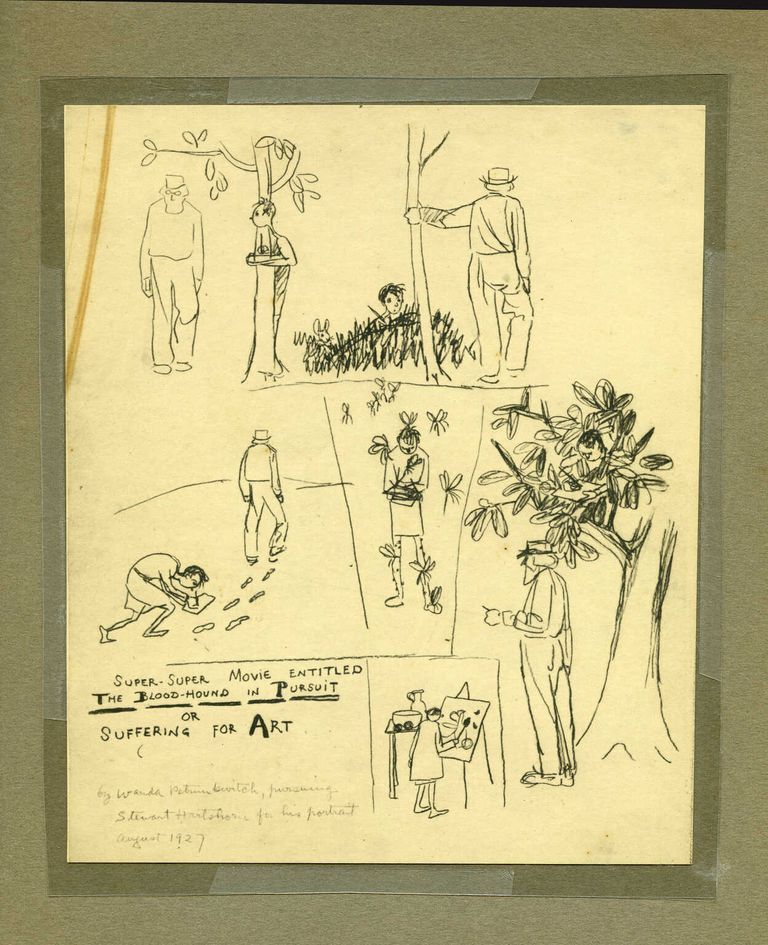 SUPER-SUPER MOVIE ENTITLED
THE BLOOD-HOUND IN PURSUIT
OR
SUFFERING FOR ART
by Wanda Petrunkevitch, pursuing
Stewart Hartshorn for his portrait
August 1927